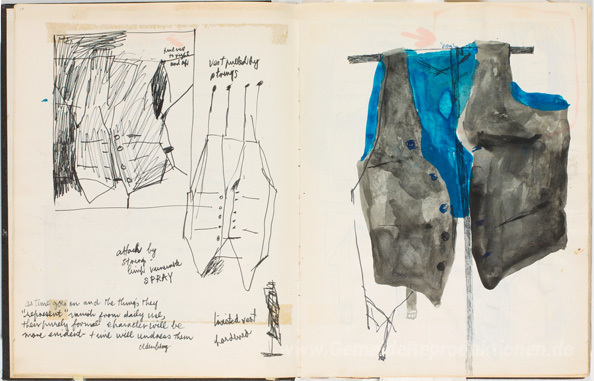 pulled
to right
and up
vest pulled by
strings
attach by
string
SPRAY
as time goes on and the things they
"represent" vanish from daily use,
their purely formal character will be
more evident + time will undress them
Oldenburg
vest
hardened
www.Gemaeldereproduktionen.de